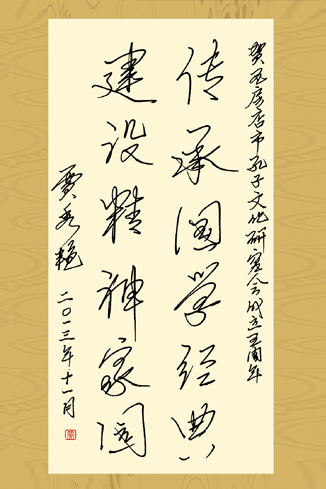 贺瓦房店市孔子文化研究会成立五周年
传承国学经典
建设精神家园
贾秀艳
二〇一三年十一月